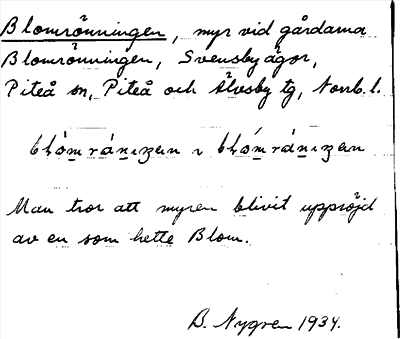 Blomrönningen, myr vid gårdarna
Blomrönningen, Svensbyägor,
Piteå sn, Piteå och Älvsby tg, Norrb. l.
Man tror att myren blivit uppröjd
av en som hette Blom.
B. Nygren 1934.